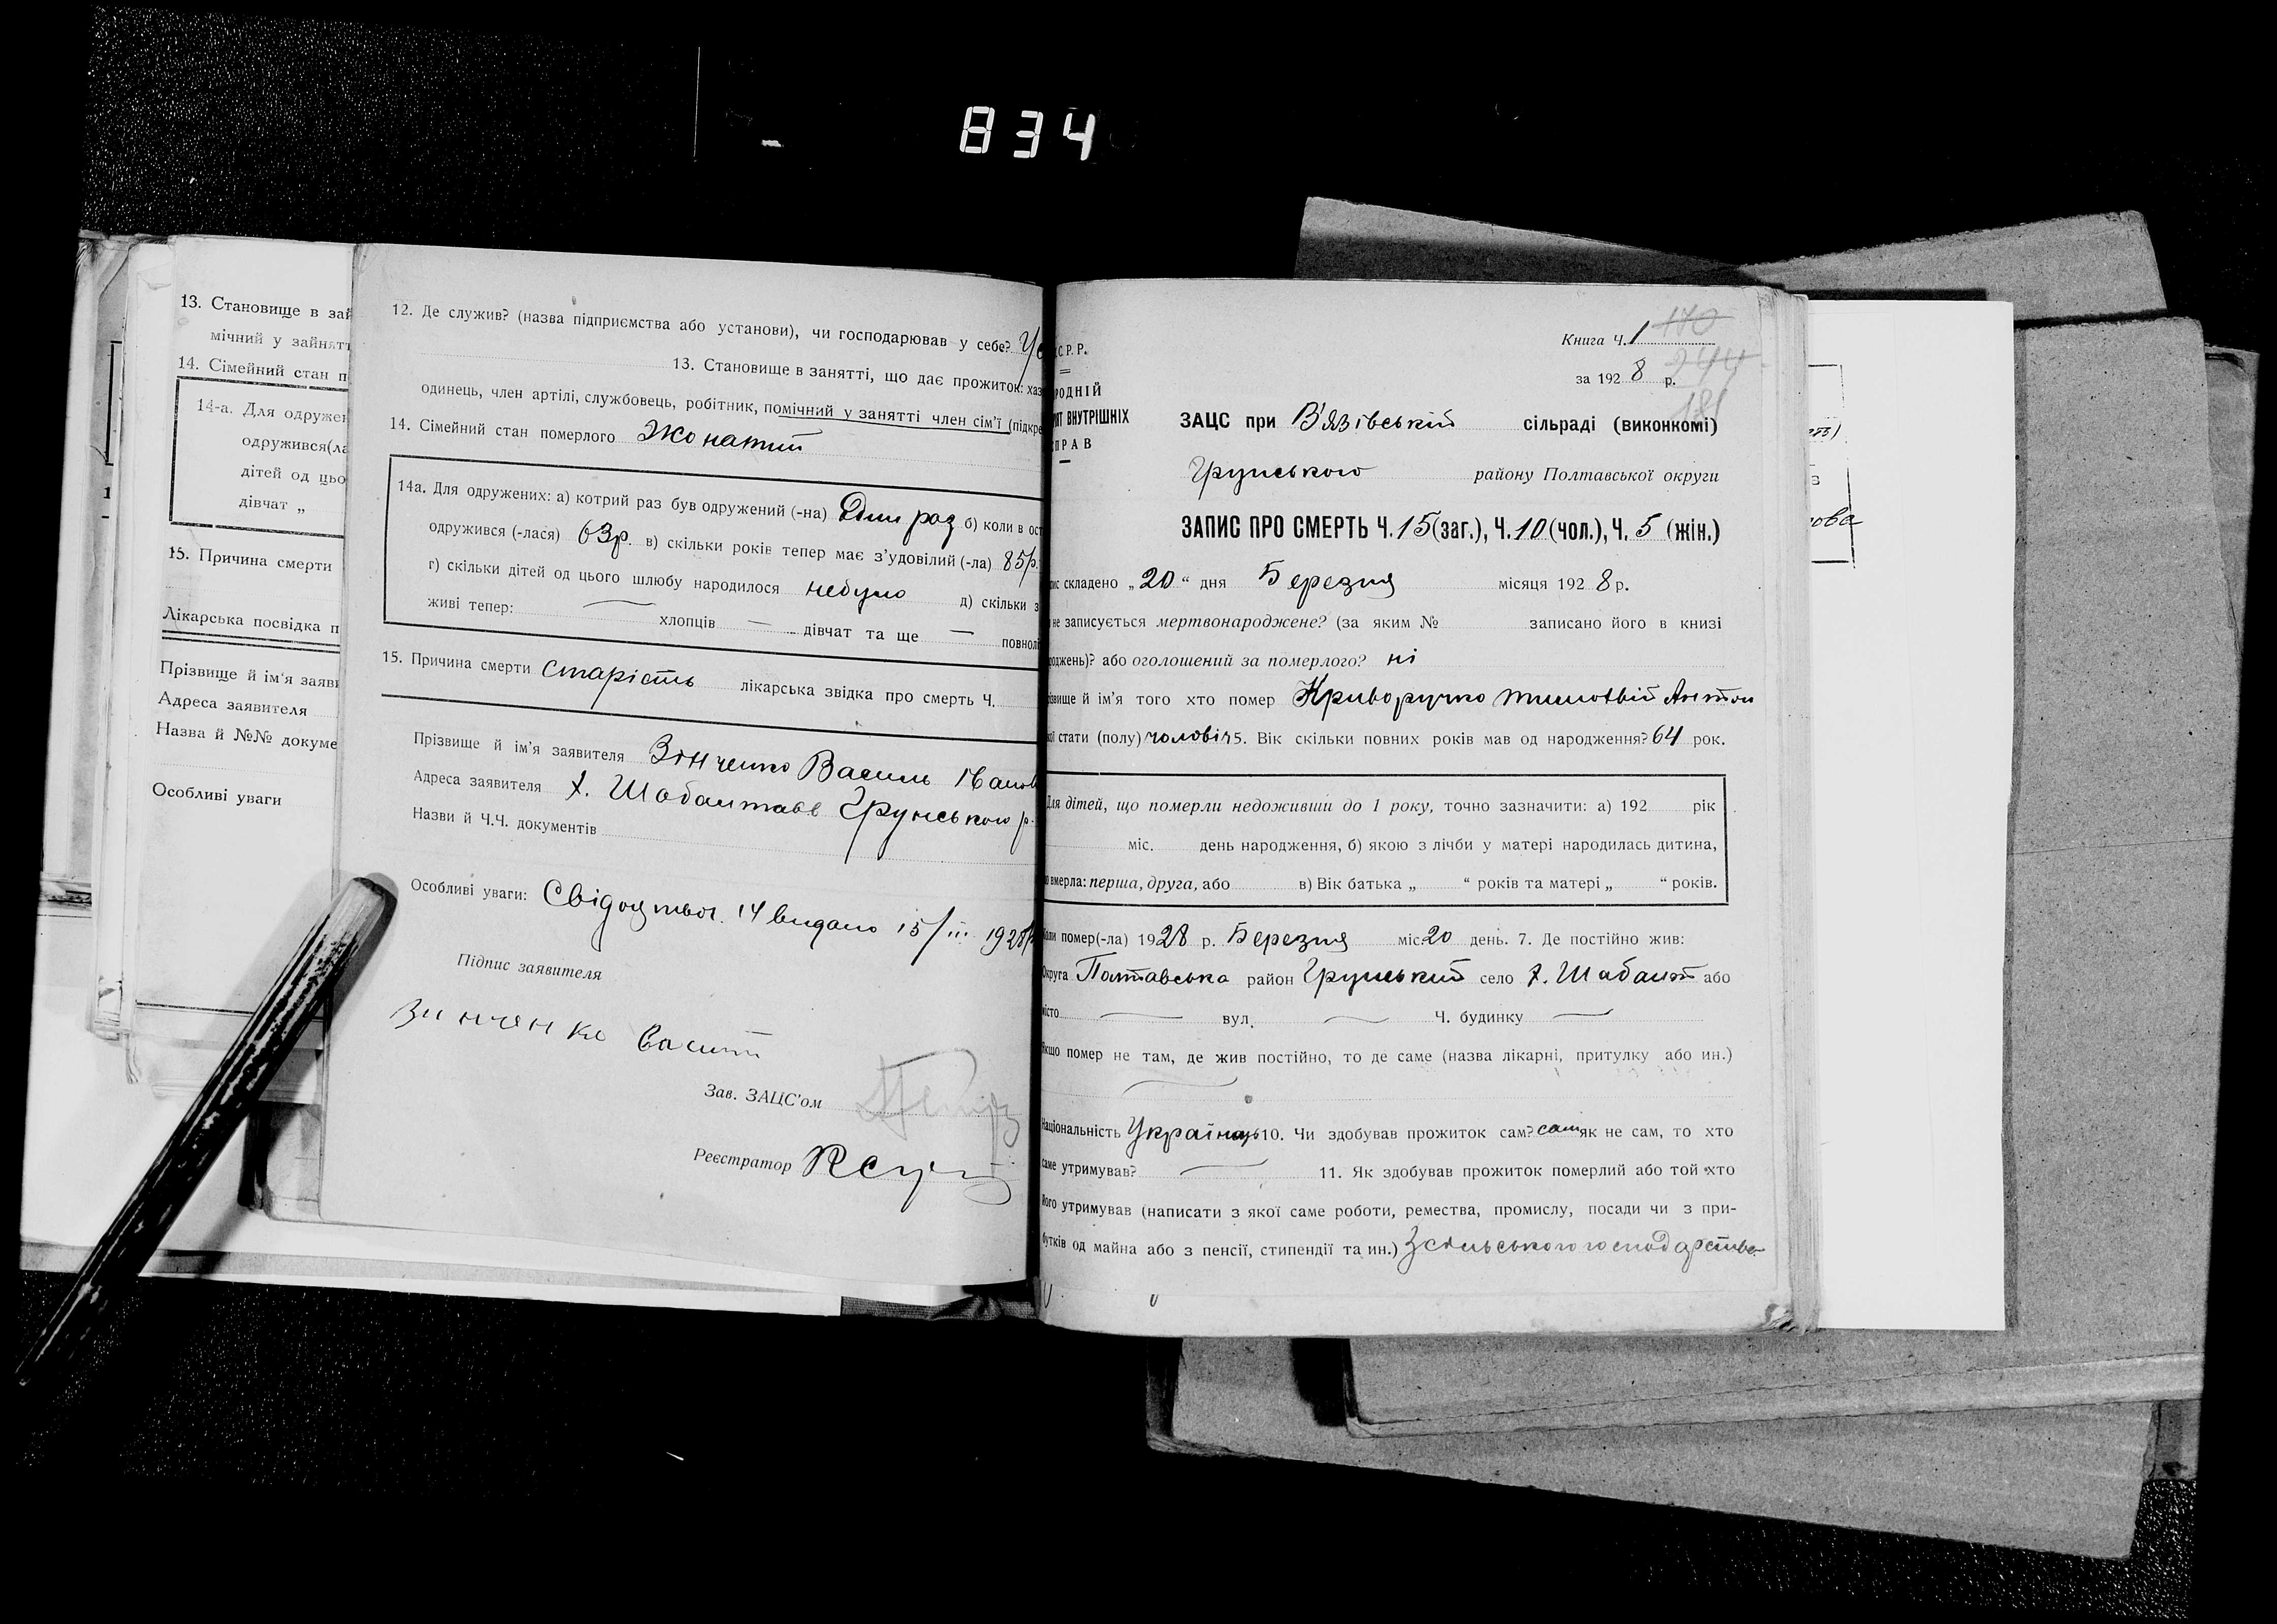 834
13. Становище в зай
мічний у зайнятт
14. Сімейний стан п
14-а. Для одружен
одружився(ла
дітей од цьо
дівчат „
15. Причина смерти
Лікарська посвідка п
Прізвище й ім'я заяви
Адреса заявителя
Назва й №№ докуме
Особливі уваги
12. Де служив? (назва підприємства або установи), чи господарював у себе?
13. Становище в занятті, що дає прожиток: хаз
одинець, член артілі, службовець, робітник, помічний у занятті член сім'ї (підкре
14. Сімейний стан померлого Жонатий
14а. Для одружених: а) котрий раз був одружений (-на) Один раз б) коли в ост
одружився (-лася) 63р. в) скільки років тепер має з'удовілий (-ла) 85р.
г) скільки дітей од цього шлюбу народилося небуло д) скільки з
живі тепер: — хлопців — дівчат та ще — повнол
15. Причина смерти старість лікарська звідка про смерть Ч.
Прізвище й ім'я заявителя Зінченко Василь Іванов
Адреса заявителя х. Шабантаве Грунського р.
Назви й Ч.Ч. документів
Особливі уваги: Свідоцтво. 14 видано 15/III 1928р
Підпис заявителя
Зинченко Васит
Зав. ЗАЦС'ом
Реєстратор
С.Р.Р.
РОДНІЙ
ІЯТ ВНУТРІШНІХ
ПРАВ
Книга Ч. 1 170
за 192 8 р. 244
181
ЗАЦС при В'язівський сільраді (виконкомі)
Грунського району Полтавської округи
ЗАПИС ПРО СМЕРТЬ Ч. 15 (заг.), Ч. 10 (чол.), Ч. 5 (жін.)
ис складено „20“ дня Березня місяця 192 8 р.
не записується мертвонароджене? (за яким № записано його в книзі
роджень)? або оголошений за померлого? ні
ізвище й ім'я того хто помер Криворучко Тимофвій Антон
кої стати (полу) чоловіч 5. Вік скільки повних років мав од народження? 64 рок.
Для дітей, що померли недоживши до 1 року, точно зазначити: а) 192 рік
міс. день народження, б) якою з лічби у матері народилась дитина,
о вмерла: перша, друга, або в) Вік батька „ “ років та матері „ “ років.
Коли помер(-ла) 1928 р. Березня міс. 20 день. 7. Де постійно жив:
Округа Полтавська район Грунський село х. Шабант або
місто — вул. — Ч. будинку —
Якщо помер не там, де жив постійно, то де саме (назва лікарні, притулку або ин.)
—
Національність Українець 10. Чи здобував прожиток сам? сам як не сам, то хто
саме утримував? — 11. Як здобував прожиток померлий або той хто
його утримував (написати з якої саме роботи, ремества, промислу, посади чи з при-
бутків од майна або з пенсії, стипендії та ин.) З сільського господарства
ова